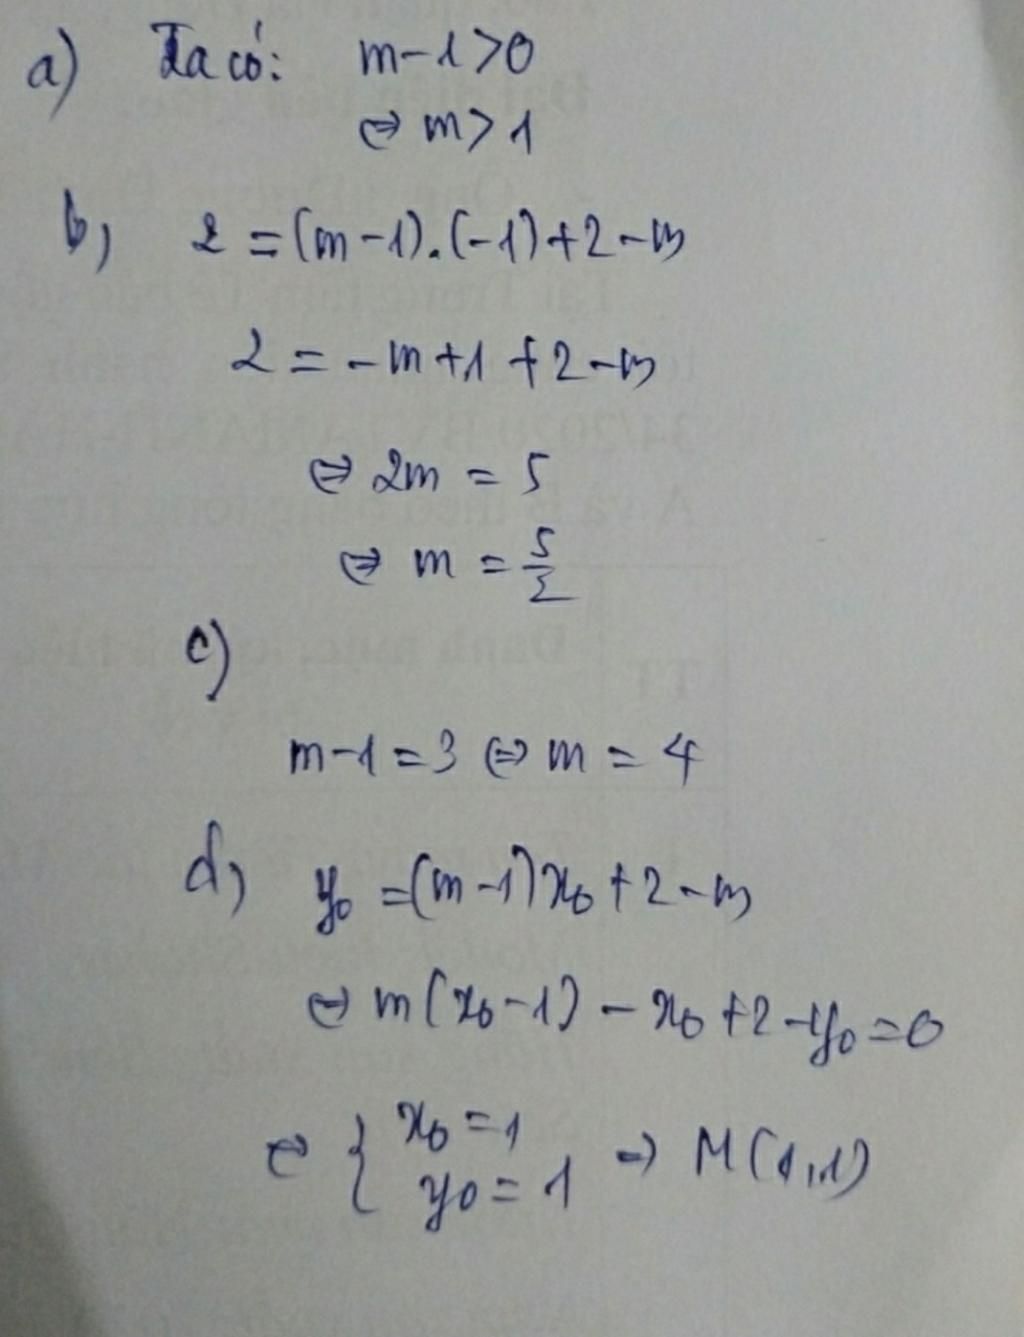 a) Ta có: m-1>0
⇔ m>1
b, 2=(m-1).(-1)+2-m
2=-m+1+2-m
⇔ 2m = 5
⇔ m = 5/2
c)
m-1=3 ⇔ m = 4
d, y₀=(m-1)x₀+2-m
⇔ m(x₀-1)-x₀+2-y₀=0
⇔ { x₀=1
y₀=1 → M(1,1)